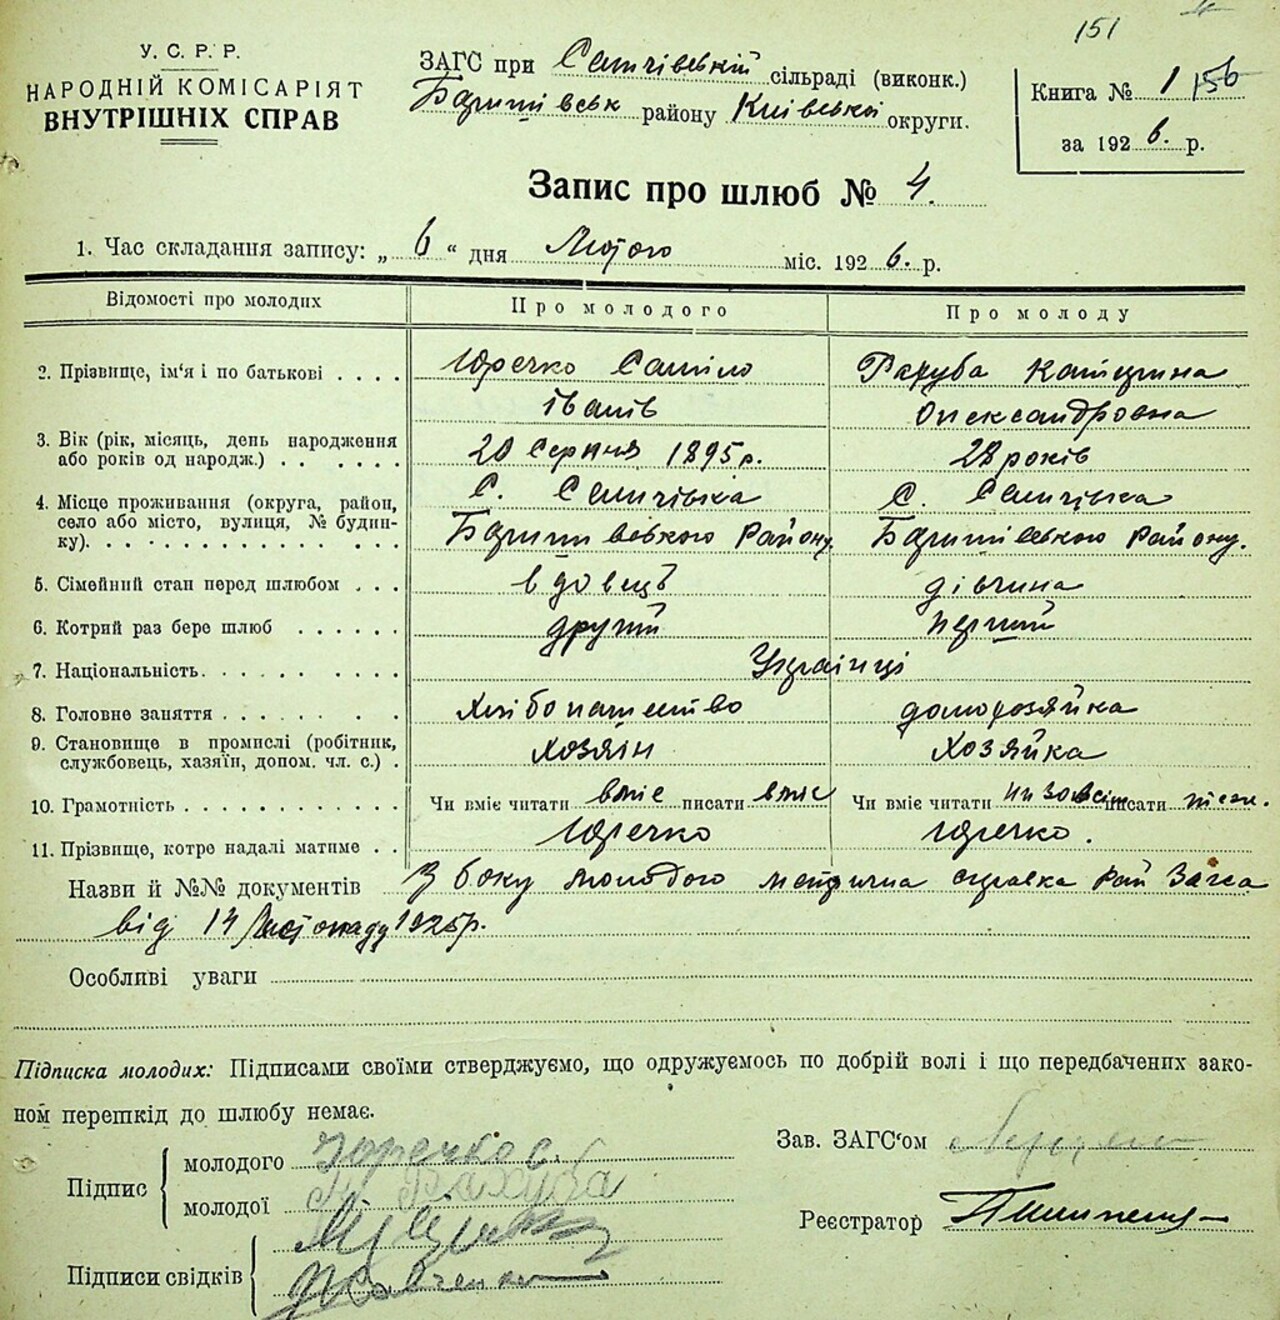 151
У. С. Р. Р.
НАРОДНІЙ КОМІСАРІЯТ
ВНУТРІШНІХ СПРАВ
ЗАГС при Семчівській сільраді (виконк.)
Баришівськ району Київської округи.
Книга № 1 156
за 1926. р.
Запис про шлюб № 4.
1. Час складання запису: „ 6 “ дня Лютого міс. 1926. р.
Відомості про молодих
Про молодого
Про молоду
2. Прізвище, ім‘я і по батькові
Юречко Саміло
Івапів
Рахуба Катерина
Олександровна
3. Вік (рік, місяць, день народження
або років од народж.)
20 Серпня 1895 р.
28 років
4. Місце проживання (округа, район,
село або місто, вулиця, № будин-
ку).
С. Семчівка
Баришівського Району.
С. Семчівка
Баришівського Району.
5. Сімейний стан перед шлюбом
вдовець
дівчина
6. Котрий раз бере шлюб
другий
перший
7. Національність.
Українці
8. Головне заняття
Хлібопашество
домохозяйка
9. Становище в промислі (робітник,
службовець, хазяїн, допом. чл. с.)
Хозяін
Хозяйка
10. Грамотність
Чи вміє читати вміє писати вміє
Чи вміє читати писати
11. Прізвище, котре надалі матиме
Юречко
Юречко.
Назви й №№ документів З боку молодого метрична справка Рай Загса
від 14 Листопаду 1925 р.
Особливі уваги
Підписка молодих: Підписами своїми стверджуємо, що одружуємось по добрій волі і що передбачених зако-
ном перешкід до шлюбу немає.
Підпис
молодого Юречко С.
молодої Рахуба
Підписи свідків
Зав. ЗАГС‘ом
Реєстратор